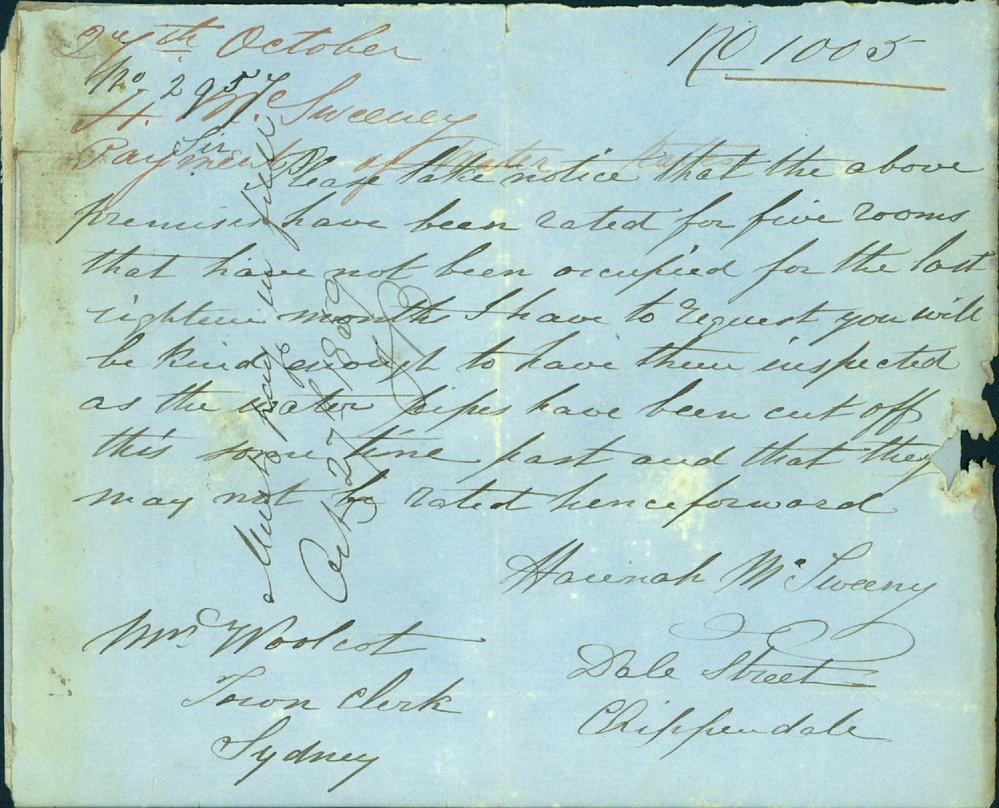 27th October
No 1005
No 2957
H. McSweeney
Payment of Water Rates
Sir
Please take notice that the above
premises have been rated for five rooms
that have not been occupied for the last
eighteen months I have to request you will
be kind enough to have them inspected
as the water pipes have been cut off
this some time past and that they
may not be rated henceforward
Hannah McSweeny
Dale Street
Chippendale
Mr Woolcot
Town Clerk
Sydney
Must pay in full
Oct 27 / 1859